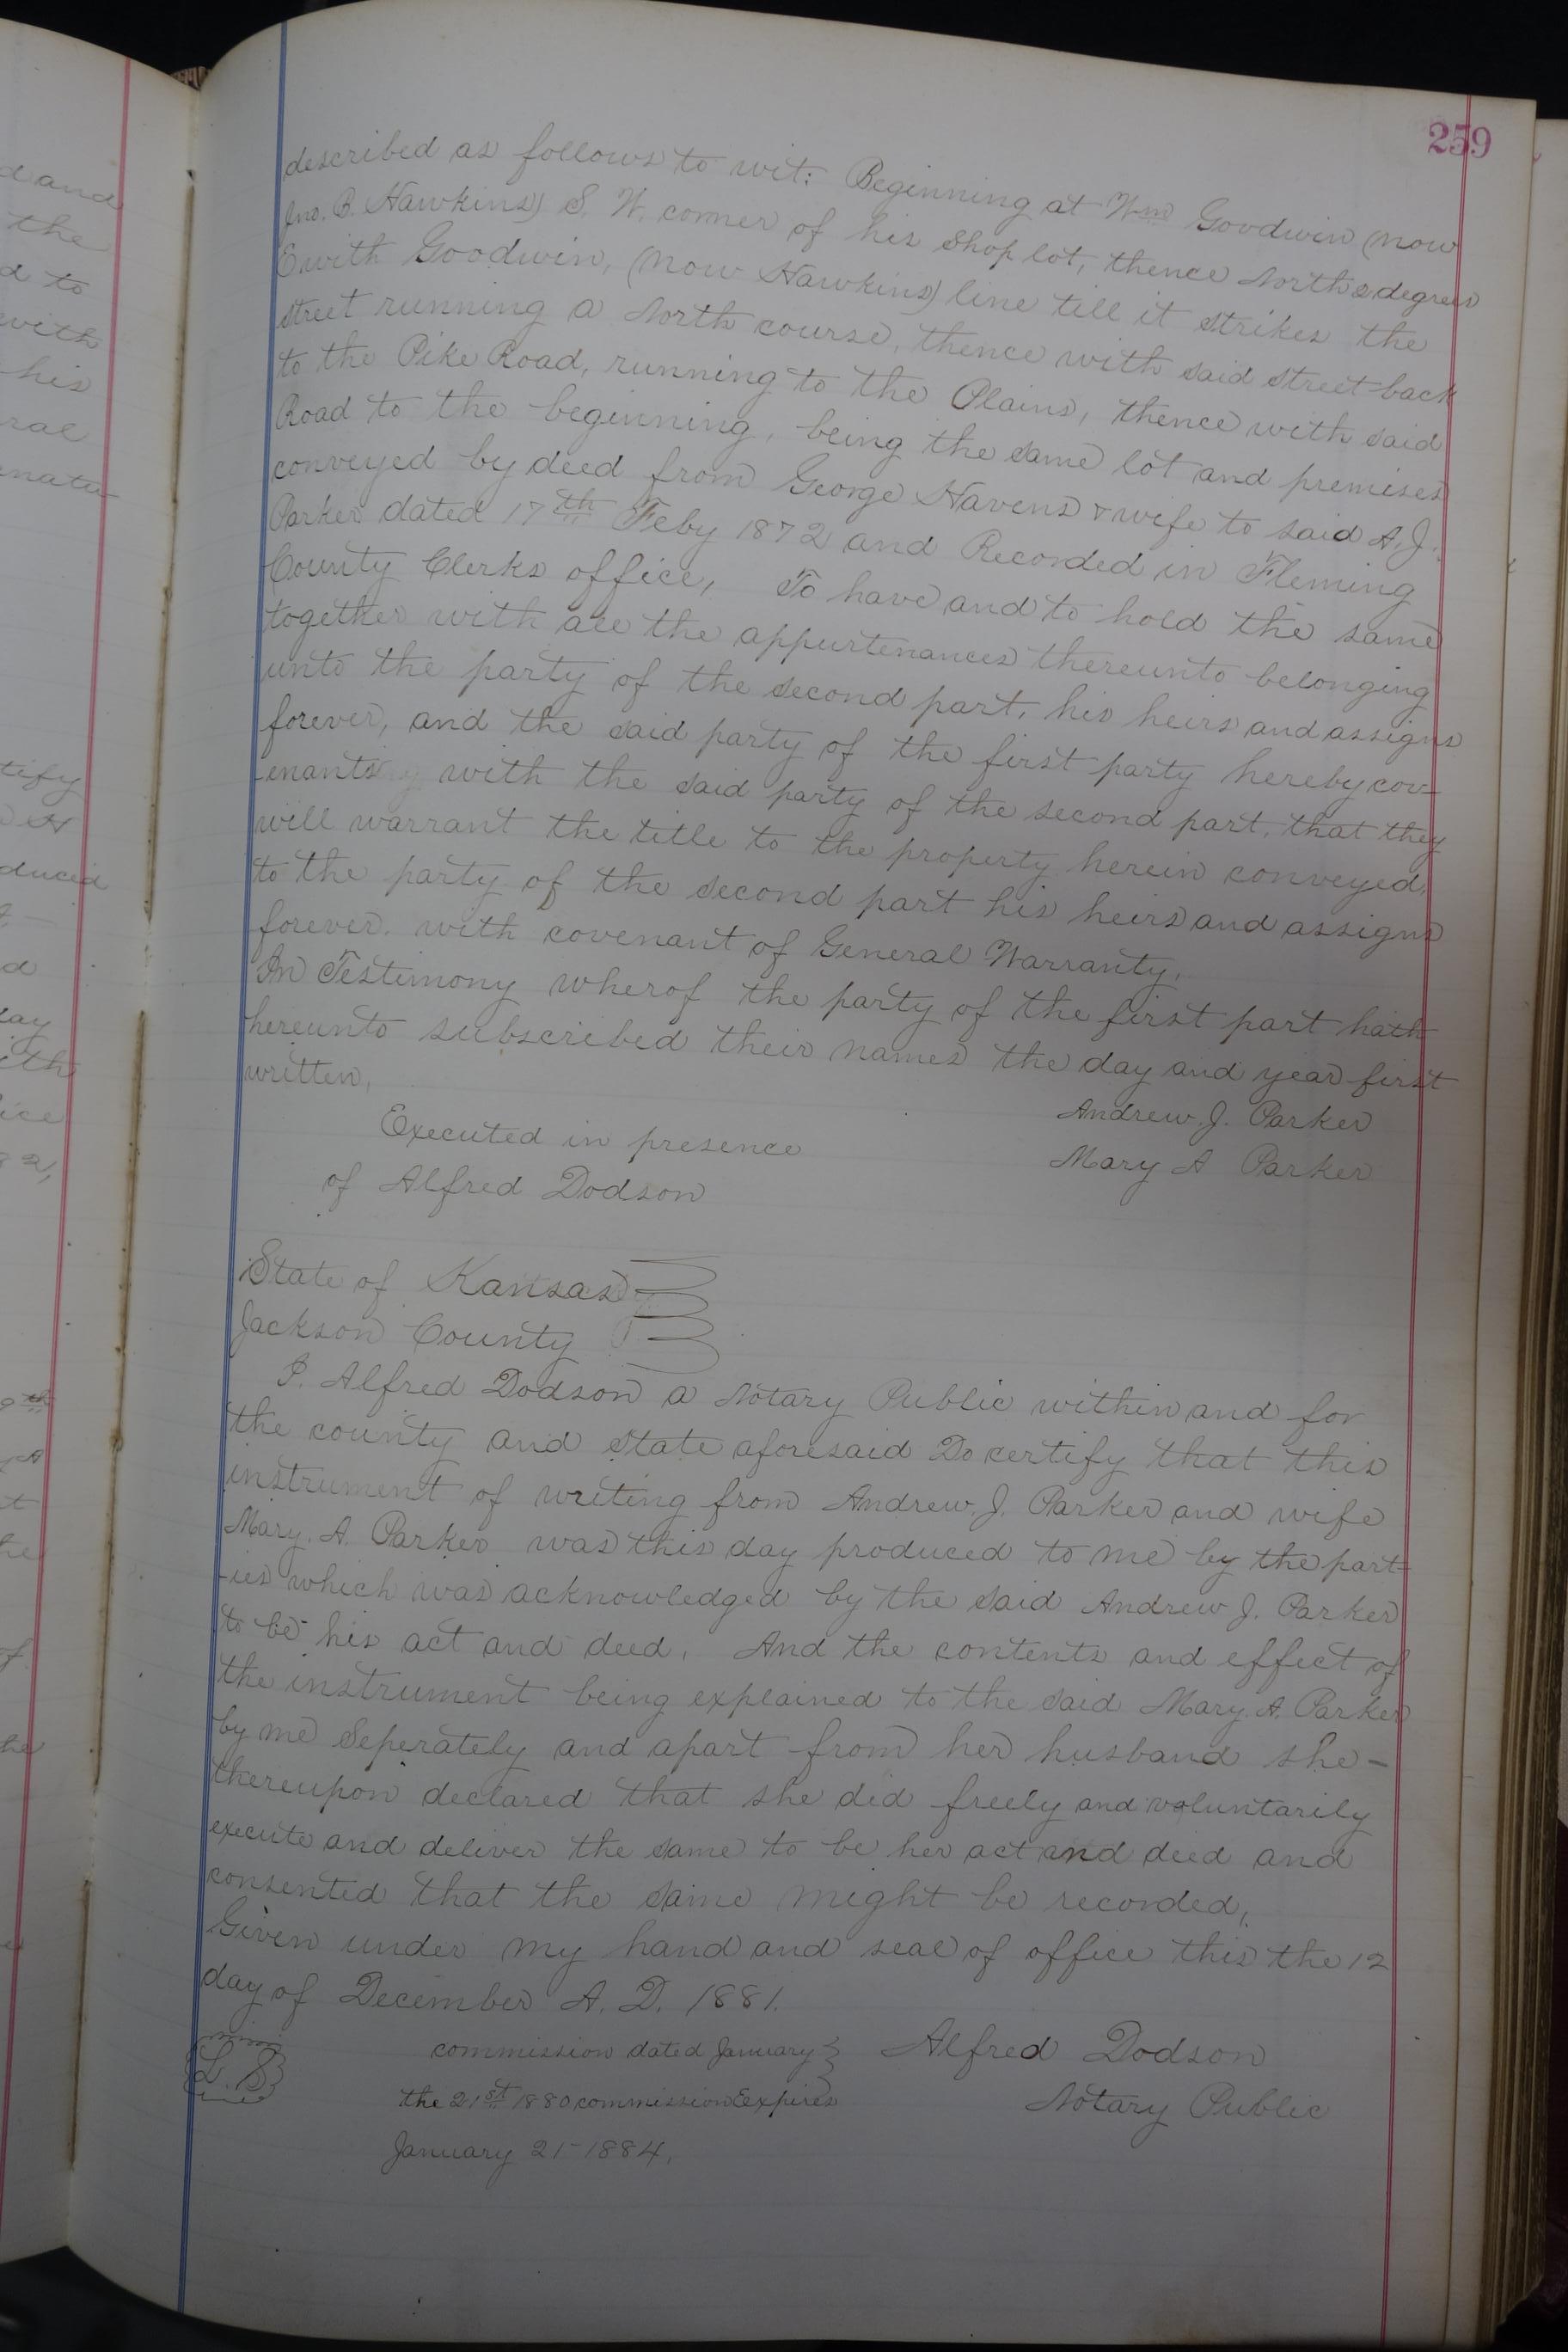 259
described as follows to wit: Beginning at Wm Goodwin (now
Jno. B. Hawkins) S. W. corner of his Shop lot, thence North 2 degrees
E with Goodwin, (now Hawkins) line till it strikes the
street running a North course, thence with said street back
to the Pike Road, running to the Plains, thence with said
Road to the beginning, being the same lot and premises
conveyed by deed from George Havens & wife to said A. J.
Parker dated 17th Feby 1872 and Recorded in Fleming
County Clerks office, To have and to hold the same
together with all the appurtenances thereunto belonging
unto the party of the second part, his heirs and assigns
forever, and the said party of the first party hereby cov-
-enants with the said party of the second part, that they
will warrant the title to the property herein conveyed,
to the party of the second part his heirs and assigns
forever. with covenant of General Warranty.
In Testimony wherof the party of the first part hath
hereunto subscribed their names the day and year first
written,
Andrew. J. Parker
Executed in presence
Mary A Parker
of Alfred Dodson
State of Kansas
Jackson County
I. Alfred Dodson a Notary Public within and for
the county and state aforesaid Do certify that this
instrument of writing from Andrew. J. Parker and wife
Mary. A. Parker was this day produced to me by the part-
-ies which was acknowledged by the said Andrew J. Parker
to be his act and deed, And the contents and effect of
the instrument being explained to the said Mary. A. Parker
by me Seperately and apart from her husband she-
thereupon declared that she did freely and voluntarily
execute and deliver the same to be her act and deed and
consented that the same might be recorded,
Given under my hand and seal of office this the 12
day of December A. D. 1881.
L. S
commission dated January
the 21st 1880 commission Expires
January 21-1884.
Alfred Dodson
Notary Public